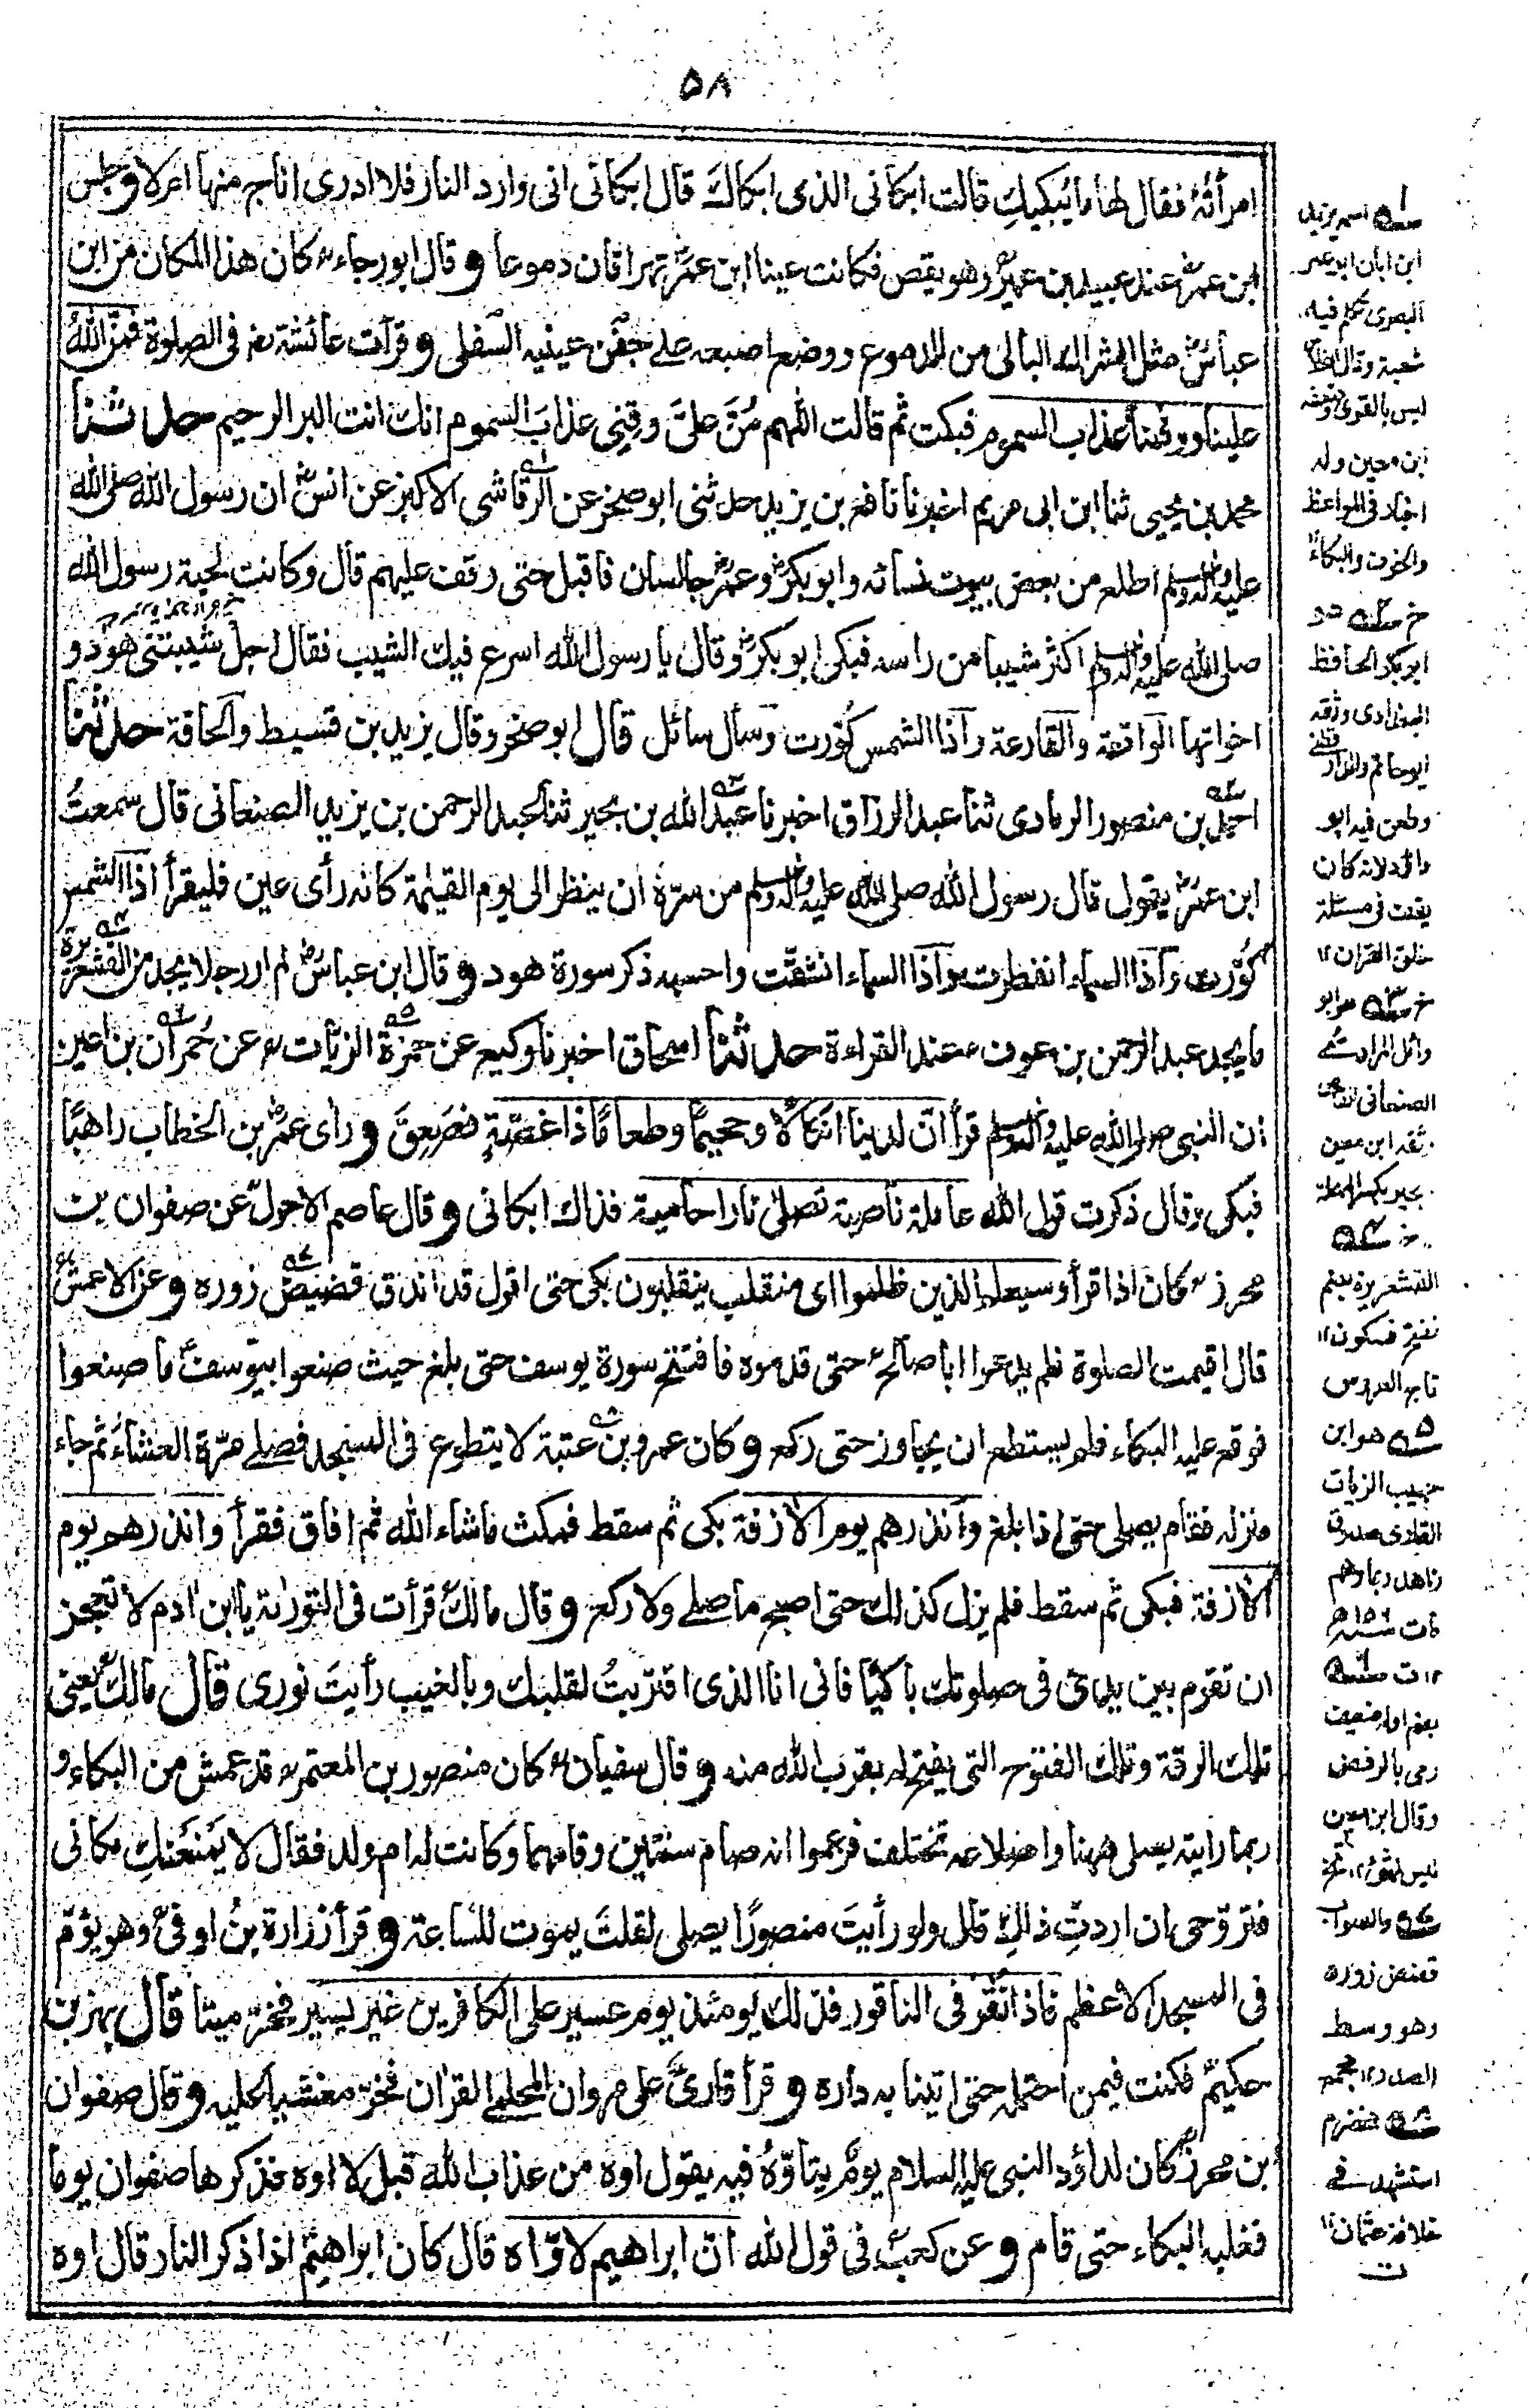 ۵۸
امرأته فقال لها ما يُبكيكِ قالت ابكانى الذى ابكاك قال ابكانى انى وارد النار فلا ادرى اناج منها ام لا وجلس
ابن عمر عند عبيد بن عمير وهو يقص فكانت عينا ابن عمر تهراقان دموعا وقال ابو رجاء كان هذا المكان من ابن
عباس مثل الشراك البالى من الدموع ووضع اصبعه على جفن عينيه السفلى وقرأت عائشة فى الصلوة فمنّ الله
علينا ووقٰنا عذاب السموم فبكت ثم قالت اللهم مُنَّ علىَّ وقِنِى عذابَ السموم انك انت البر الرحيم حدثنا
محمد بن يحيى ثنا ابن ابى مريم اخبرنا نافع بن يزيد حدثنى ابو صخر عن الرقاشى الاكبر عن انس ان رسول الله صلى الله
عليه واله وسلم اطلع من بعض بيوت نسائه وابو بكر وعمر جالسان فاقبل حتى وقف عليهم قال وكانت لحية رسول الله
صلى الله عليه واله وسلم اكثر شيبا من راسه فبكى ابو بكر وقال يا رسول الله اسرع فيك الشيب فقال اجل شيبتنى هود و
اخواتها الواقعة والقارعة واذا الشمس كُوّرت وسأل سائل قال ابو صخر وقال يزيد بن قسيط والحاقة حدثنا
احمد بن منصور الرمادى ثنا عبد الرزاق اخبرنا عبد الله بن بحير ثنا عبد الرحمن بن يزيد الصنعانى قال سمعتُ
ابن عمر يقول قال رسول الله صلى الله عليه واله وسلم من سرّهُ ان ينظر الى يوم القيٰمة كانه رأى عين فليقرأ اذا الشمس
كُوّرت واذا السماء انفطرت واذا السماء انشقّت واحسبه ذكر سورة هود وقال ابن عباس لم ار رجلا يجد من القشعريرة
ما يجد عبد الرحمن بن عوف عند القراءة حدثنا اسحاق اخبرنا وكيع عن حمزة الزيّات عن حُمران بن اعين
ان النبى صلى الله عليه واله وسلم قرأ انّ لدينا انكالًا وجحيمًا وطعامًا ذا غصّةٍ فصَعِقَ ورأى عمر بن الخطاب راهبًا
فبكى وقال ذكرت قول الله عاملة ناصبة تصلىٰ نارا حامية فذاك ابكانى وقال عاصم الاحول عن صفوان بن
محرز كان اذا قرأ وسيعلم الذين ظلموا اى منقلب ينقلبون بكى حتى اقول قد اندق قضيض زوره وعن الاعمش
قال اقيمت الصلوة فلم يدعوا ابا صالح حتى قدموه فافتتح سورة يوسف حتى بلغ حيث صنعوا بيوسف ما صنعوا
فوقع عليه البكاء فلم يستطع ان يجاوز حتى ركع وكان عمرو بن عتبة لا يتطوع فى المسجد فصلى مرّة العشاءَ ثم جاء
منزله فقام يصلى حتى اذا بلغ وانذرهم يوم الازفة بكى ثم سقط فمكث ما شاء الله ثم افاق فقرأ وانذرهم يوم
الازفة فبكى ثم سقط فلم يزل كذلك حتى اصبح ما صلى ولا ركع وقال مالك قرأت فى التورٰىة يا ابن ادم لا تعجز
ان تقوم بين يدىّ فى صلوتك باكيًا فانى انا الذى اقتربتُ لقلبك وبالغيب رأيتَ نورى قال مالك يعنى
تلك الرقة وتلك الفتوح التى يفتح له بقرب الله منه وقال سفيان كان منصور بن المعتمر قد عمش من البكاء و
ربما رايته يصلى ههنا واضلاعه تختلف فزعموا انه صام سنتين وقامهما وكانت له ام ولد فقال لا يَمنَعَنكِ مكانى
فتزوّجى ان اردتِ ذلك قال ولو رأيتَ منصورًا يصلى لقلتَ يموت للساعة وقرأ زرارة بنُ اوفى وهو يؤمّ
فى المسجد الاعظم فاذا نُقر فى الناقور فذلك يومئذ يوم عسير على الكافرين غير يسير فخرّ ميتا قال بهز بن
حكيم فكنت فيمن احتمله حتى اتينا به داره وقرأ قارئ على مروان المحلمى القرٰان فخرّ مغشيا عليه وقال صفوان
بن محرز كان لداؤد النبى عليه السلام يومٌ يتأوّهُ فيه يقول اوه من عذاب الله قبل لا اوه فذكرها صفوان يوما
فغلبه البكاء حتى قام وعن كعب فى قول الله انّ ابراهيم لاوّاه قال كان ابراهيم اذا ذكر النار قال اوه
اسمه يزيد
ابن ابان ابو عمر
البصرى تكلم فيه
شعبة وقال
ليس بالقوى وضعفه
ابن معين وله
اخبار فى المواعظ
والخوف والبكاء
ابو بكر الحافظ
البغدادى وثقه
ابو حاتم والدارقطنى
وطعن فيه ابو
داؤد لانه كان
يقف فى مسئلة
خلق القران ۱۲
هو ابو
وائل المرادى
الصنعانى القاص
وثقه ابن معين
بحير بكسر المهملة
القشعريرة بضم
ففتح فسكون ۱۲
تاج العروس
هو ابن
حبيب الزيات
القارى صدوق
زاهد ربما وهم
مات
بضم اوله ضعيف
رمى بالرفض
وقال ابن معين
ليس بشئ ۱۲
والصواب
قصص زوره
وهو وسط
الصدر ۱۲ مجمع
مخضرم
استشهد فى
خلافة عثمان ۱۲
ت